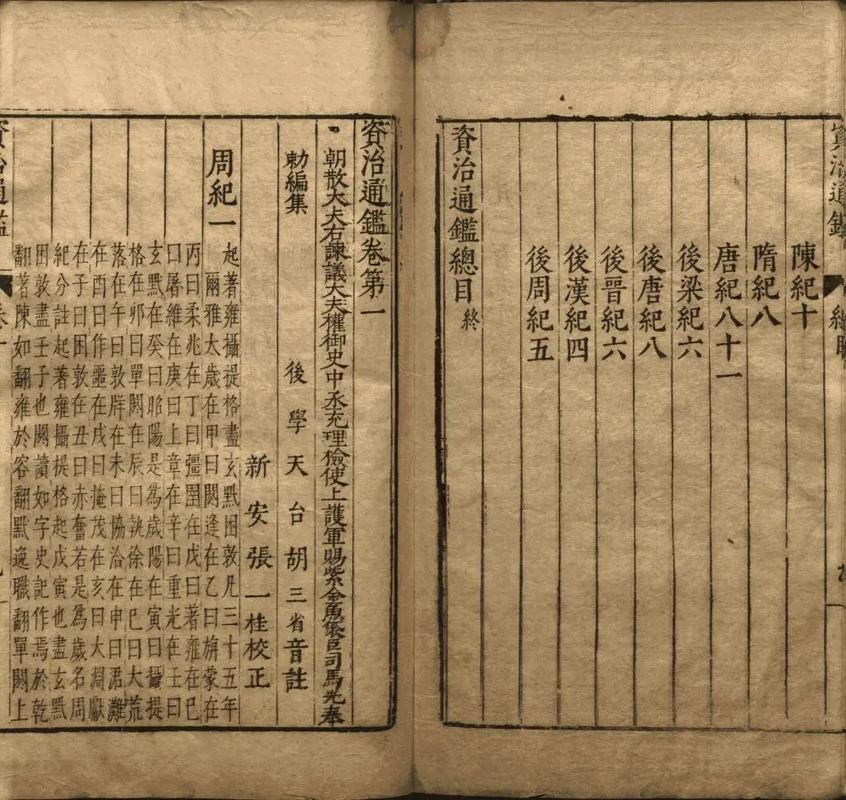 資治通鑑
總目
陳紀十
隋紀八
唐紀八十一
後梁紀六
後唐紀八
後晉紀六
後漢紀四
後周紀五
資治通鑑總目 終
資治通鑑卷第一
朝散大夫右諫議大夫權御史中丞充理檢使上護軍賜紫金魚袋臣司馬光奉
勅編集 後學天台胡三省音註
新安張一桂校正
周紀一 起著雍攝提格盡玄黓困敦凡三十五年
爾雅太歲在甲曰閼逢在乙曰旃蒙在
丙曰柔兆在丁曰彊圉在戊曰著雍在巳
曰屠維在庚曰上章在辛曰重光在壬曰
玄黓在癸曰昭陽是為歲陽在寅曰攝提
格在卯曰單閼在辰曰執徐在巳曰大荒
落在午曰敦牂在未曰協洽在申曰涒灘
在酉曰作噩在戌曰掩茂在亥曰大淵獻
在子曰困敦在丑曰赤奮若是為歲名周
紀分註起著雍攝提格起戊寅也盡玄黓
困敦盡壬子也閼讀如字史記作焉於乾
翻著陳如翻雍於容翻黓逸職翻單閼上
資治通鑑